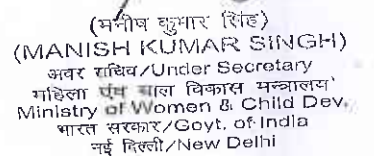 (मनीष कुमार सिंह)
(MANISH KUMAR SINGH)
अवर सचिव/Under Secretary
महिला एंव बाल विकास मन्त्रालय
Ministry of Women & Child Dev.
भारत सरकार/Govt. of India
नई दिल्ली/New Delhi